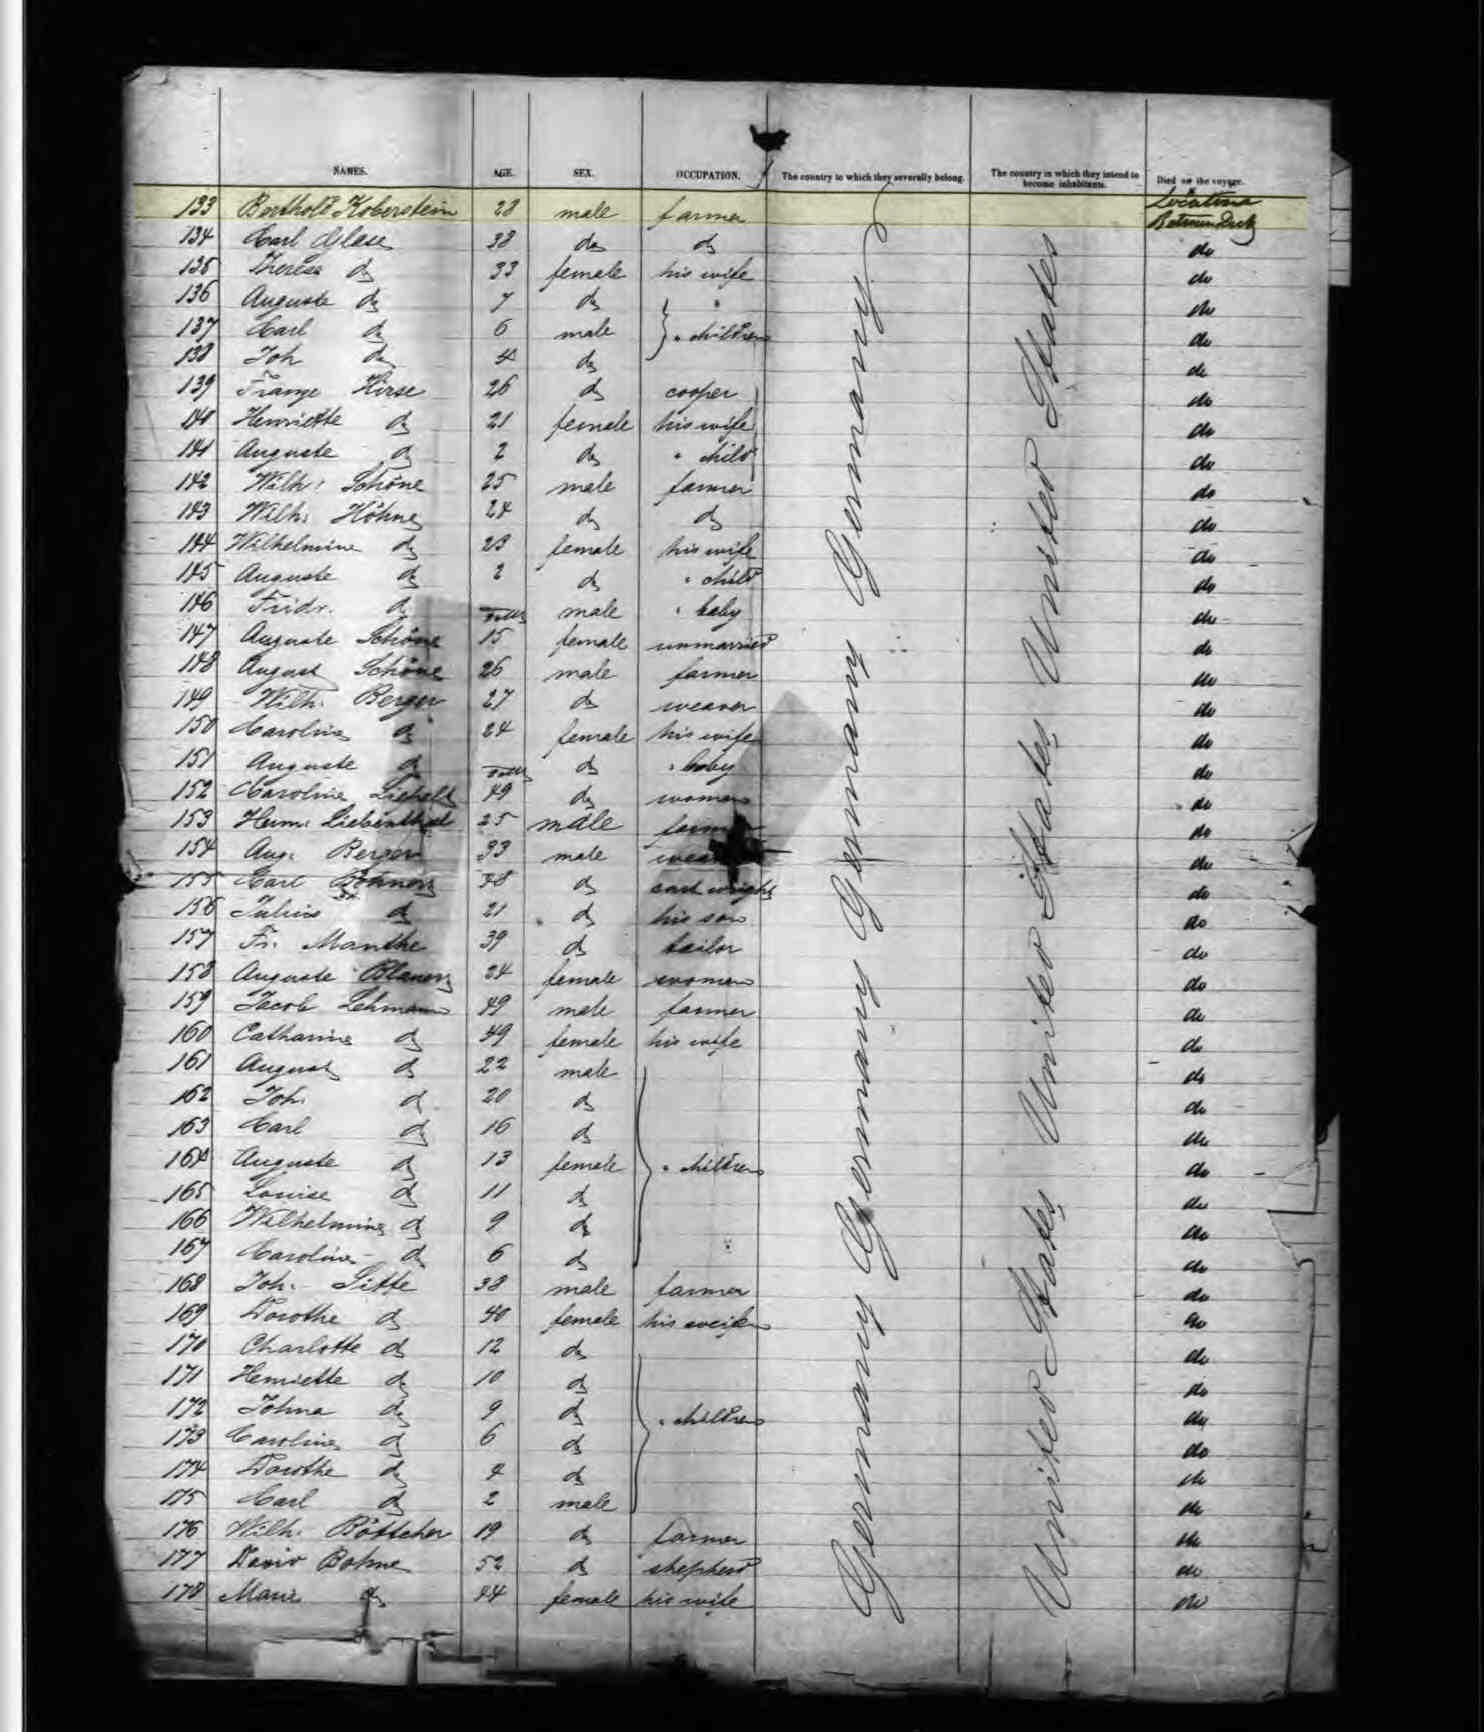 NAMES. AGE. SEX. OCCUPATION. The country to which they severally belong. The country in which they intend to become inhabitants. Died on the voyage.
Location
133 Berthold Koberstein 28 male farmer Between Deck
134 Carl Glase 38 do do do
135 Therese do 33 female his wife do
136 Auguste do 7 do " do
137 Carl do 6 male " children do
138 Joh do 4 do do
139 Franze Hirse 26 do cooper do
140 Henriette do 21 female his wife do
141 Auguste do 2 do " child do
142 Wilh: Schöne 25 male farmer do
143 Wilh. Höhne 24 do do do
144 Wilhelmine do 23 female his wife do
145 Auguste do 2 do " child do
146 Fridr. do male " baby do
147 Auguste Schöne 15 female unmarried do
148 August Schöne 26 male farmer do
149 Wilh. Berger 27 do weaver do
150 Caroline do 24 female his wife do
151 Auguste do do " baby do
152 Caroline 49 do woman do
153 Herm: Liebenthal 25 male farmer do
154 Aug. Berger 33 male do
155 Carl 48 do cartwright do
156 Julius do 21 do his son do
157 Fr. Manthe 39 do tailor do
158 Auguste 24 female woman do
159 Jacob Lehmann 49 male farmer do
160 Catharine do 49 female his wife do
161 August do 22 male do
162 Joh. do 20 do do
163 Carl do 16 do do
164 Auguste do 13 female " children do
165 Louise do 11 do do
166 Wilhelmine do 9 do do
167 Caroline do 6 do do
168 Joh. Sitte 38 male farmer do
169 Dorothe do 40 female his weife do
170 Charlotte do 12 do do
171 Henriette do 10 do do
172 Johna do 9 do " children do
173 Caroline do 6 do do
174 Dorothe do 4 do do
175 Carl do 2 male do
176 Wilh. Böttcher 19 do farmer do
177 David Bohne 52 do shepherd do
178 Marie do 44 female his wife do
Germany Germany Germany Germany Germany
United States United States United States